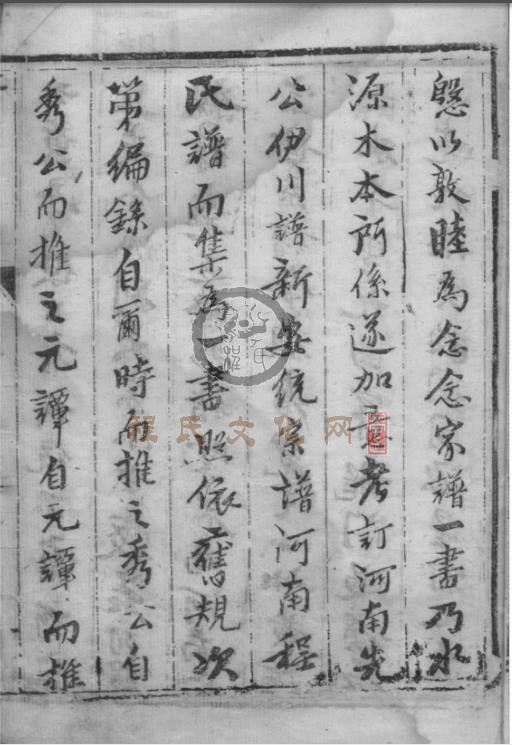 慇以敦睦為念念家譜一書乃水
源木本所係遂加考訂河南先
公伊川譜新安統宗譜河南程
氏譜而集為一書照依舊規次
第編錄自爾時而推之秀公自
秀公而推之元譚自元譚而推
程氏文化网